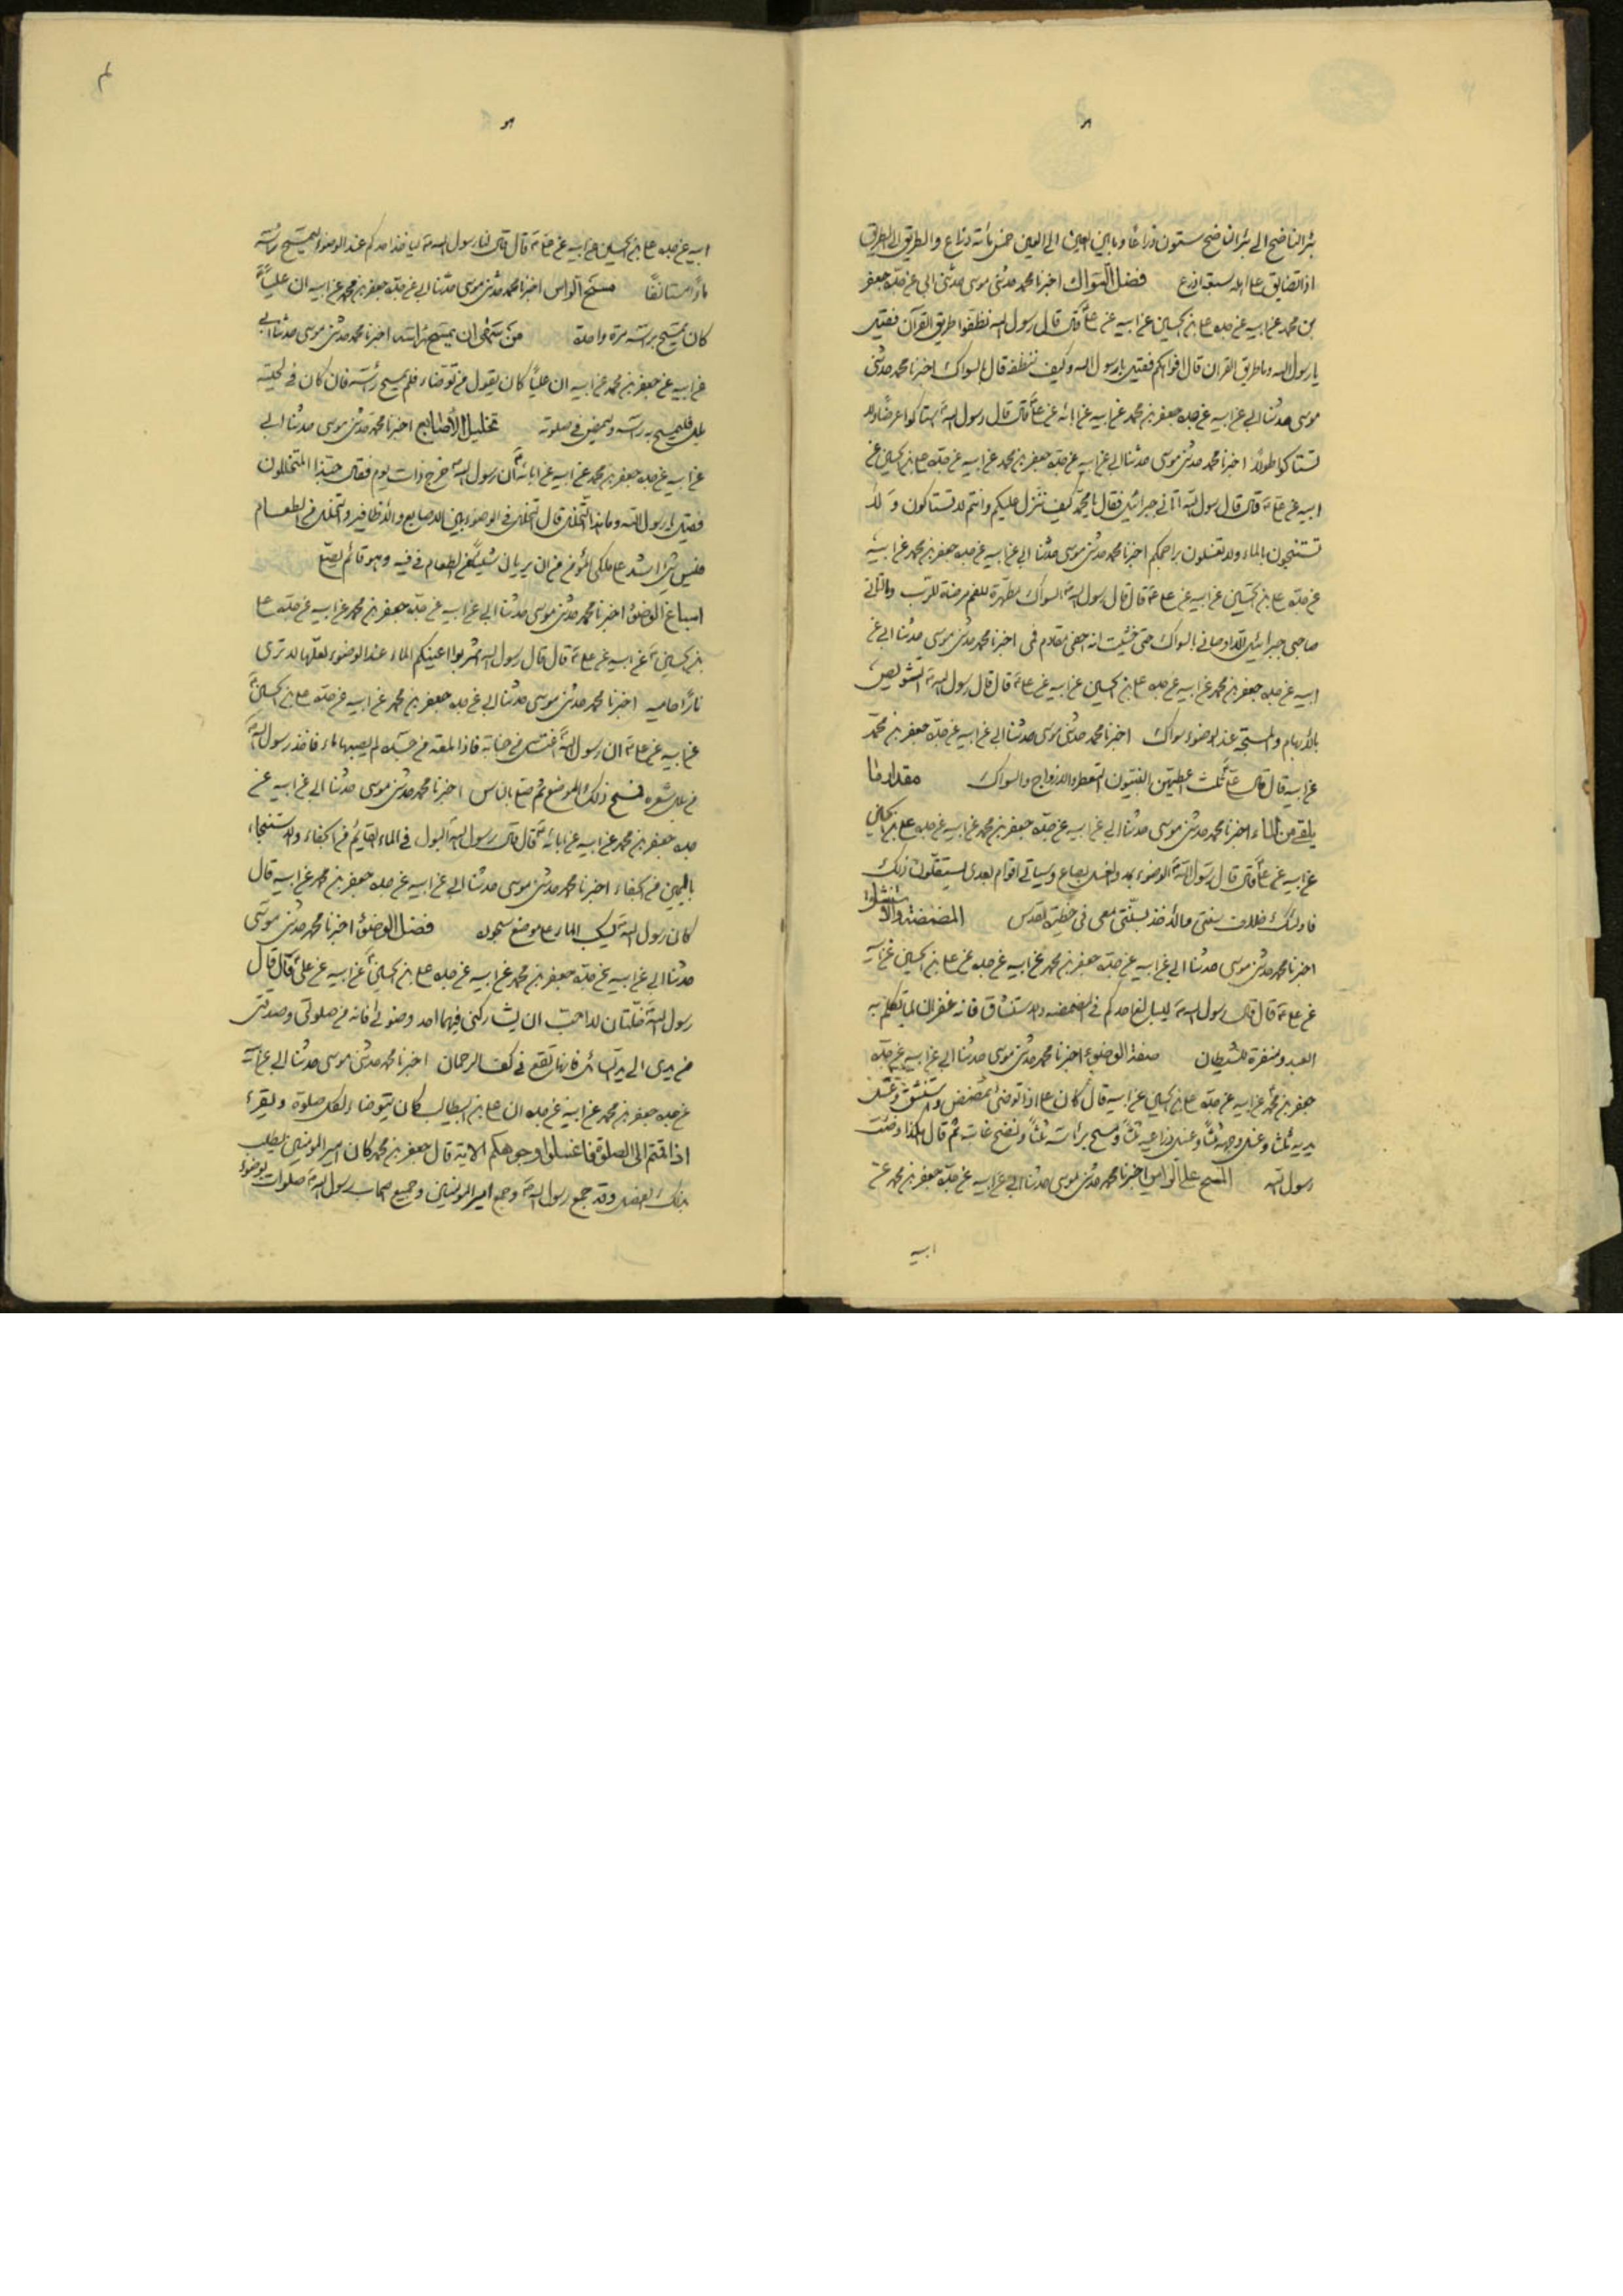 بئر الناضح الى بئر الناضح ستون ذراعا وما بين العين الى العين خمس مأته ذراع والطريق الى الطريق
اذا تضايق على اهله سبعة اذرع فضل السّواك اخبرنا محمد حدثنى موسى حدثنى ابى عن جدّه جعفر
بن محمد عن ابيه عن جده على بن الحسين عن ابيه عن علىّ قال قال رسول الله نظفوا طريق القرآن فقيل
يا رسول الله وما طريق القران قال افواهكم فقيل يا رسول الله وكيف ننظفه قال بالسواك اخبرنا محمد حدثنى
موسى حدثنا ابى عن ابيه عن جده جعفر بن محمد عن ابيه عن ابائه عن علىّ قال قال رسول الله استاكوا عرضًا ولا
تستاكوا طولاً اخبرنا محمد حدثنى موسى حدثنا ابى عن ابيه عن جدّه جعفر بن محمد عن ابيه عن جدّه على بن الحسين عن
ابيه عن على قال قال رسول الله اتانى جبرائيل فقال يا محمّد كيف ننزل عليكم وانتم لا تستاكون ولا
تستنجون بالماء ولا تغسلون براجمكم اخبرنا محمد حدثنى موسى حدثنا ابى عن ابيه عن جده جعفر بن محمد عن ابيه
عن جدّه على بن الحسين عن ابيه عن على قال قال رسول الله السواك مطهّرة للفم مرضاة للرّب وما اتانى
صاحبى جبرائيل الا اوصانى بالسواك حتى خشيت ان احفى مقادم فمى اخبرنا محمد حدثنى موسى حدثنا ابى عن
ابيه عن جده جعفر بن محمد عن ابيه عن جده على بن الحسين عن ابيه عن على قال قال رسول الله التشويص
بالابهام والمسبّحة عند الوضوء سواك اخبرنا محمد حدثنى موسى حدثنا ابى عن ابيه عن جدّه جعفر بن محمّد
عن ابيه قال قال علىّ ثلث اعطيهن النبيّون التعطر والازواج والسواك مقدار ما
يلقى من الماء اخبرنا محمد حدثنى موسى حدثنا ابى عن ابيه عن جدّه جعفر بن محمد عن ابيه عن جده على بن الحسين
عن ابيه عن علىّ قال قال رسول الله الوضوء بمد والغسل بصاع وسياتى اقوام بعدى يستقلّون ذلك
فاولئك خلاف سنتى والاخذ بسنّتى معى فى حظيرة القدس المضمضة والاستنشاق
اخبرنا محمد حدثنى موسى حدثنا ابى عن ابيه عن جدّه جعفر بن محمد عن ابيه عن جده عن على بن الحسين عن ابيه
عن على قال قال رسول الله ليبالغ احدكم فى المضمضه والاستنشاق فانه غفران لما تكلم به
العبد ومنفرة للشيطان صفة الوضوء اخبرنا محمد حدثنى موسى حدثنا ابى عن ابيه عن جدّه
جعفر بن محمّد عن ابيه عن جدّه على بن الحسين عن ابيه قال كان على اذا توضئ تمضمض واستنشق وغسل
يديه ثلاثا وغسل وجهه ثلثًا وغسل ذراعيه ثلثًا ومسح برأسه ثلثًا ونضح غابته ثم قال هكذا وضئت
رسول الله المسح على الراس اخبرنا محمد حدثنى موسى حدثنا ابى عن ابيه عن جدّه جعفر بن محمد عن
ابيه
ابيه عن جده على بن الحسين عن ابيه عن على قال قال لنا رسول الله لياخذ احدكم عند الوضوء لتمسيح رأسه
ماءً مستانفًا مسح الراس اخبرنا محمد حدثنى موسى حدثنا ابى عن جدّه جعفر بن محمد عن ابيه ان عليًّا
كان يمسح براسه مرّة واحدة من نسى ان يمسح براسه اخبرنا محمد حدثنى موسى حدثنا ابى
عن ابيه عن جعفر بن محمد عن ابيه ان عليًا كان يقول من توضاء فلم يمسح رأسه فان كان فى لحيته
بلل فليمسح به راسه وليمض فى صلوته تخليل الأصابع اخبرنا محمّد حدثنى موسى حدثنا ابى
عن ابيه عن جده جعفر بن محمد عن ابيه عن ابائه ان رسول الله خرج ذات يوم فقال حبّذا المتخللون
فقيل يا رسول الله وما هذا التّخلّل قال التخلل فى الوضوء بين الاصابع والاظافير والتخلل من الطعام
فليس شئ اشد على ملكى المؤمن من ان يريان شيئًا من الطعام فى فيه وهو قائم يصلّى
اسباغ الوضوء اخبرنا محمد حدثنى موسى حدثنا ابى عن ابيه عن جدّه جعفر بن محمد عن ابيه عن جدّه على
بن الحسين عن ابيه عن على قال قال رسول الله اشربوا اعينكم الماء عند الوضوء لعلّها لا ترى
نارًا حاميه اخبرنا محمد حدثنى موسى حدثنا ابى عن جده جعفر بن محمد عن ابيه عن جدّه على بن الحسين
عن ابيه عن على ان رسول الله اغتسل من جنابة فاذا لمعه من جسده لم يصبها ماء فاخذ رسول الله
من بلل شعره فمسح ذلك الموضع ثم صلّى بالناس اخبرنا محمد حدثنى موسى حدثنا ابى عن ابيه عن
جده جعفر بن محمد عن ابيه عن ابائه قال قال رسول الله البول فى الماء القايم من الجفاء والاستنجاء
باليمين من الجفاء اخبرنا محمد حدثنى موسى حدثنا ابى عن ابيه عن جده جعفر بن محمد عن ابيه قال
كان رسول الله يسكب الماء على موضع سجوده فضل الوضوء اخبرنا محمد حدثنى موسى
حدثنا ابى عن ابيه عن جدّه جعفر بن محمد عن ابيه عن جده على بن الحسين عن ابيه عن علىّ قال قال
رسول الله خلّتان لا احبّ ان يشاركنى فيهما احد وضوئى فانه من صلوتى وصدقتى
من يدى الى يد السائل فانها تقع فى كف الرحمان اخبرنا محمد حدثنى موسى حدثنا ابى عن ابيه
عن جده جعفر بن محمد عن ابيه عن جده ان على بن ابيطالب كان يتوضاء لكل صلوة ويقرء
اذا قمتم الى الصلوة فاغسلوا وجوهكم الاية قال جعفر بن محمد كان امير المومنين يطلب
بذلك الفضل وقد جمع رسول الله وجمع امير المومنين وجميع اصحاب رسول الله صلوات بوضوء